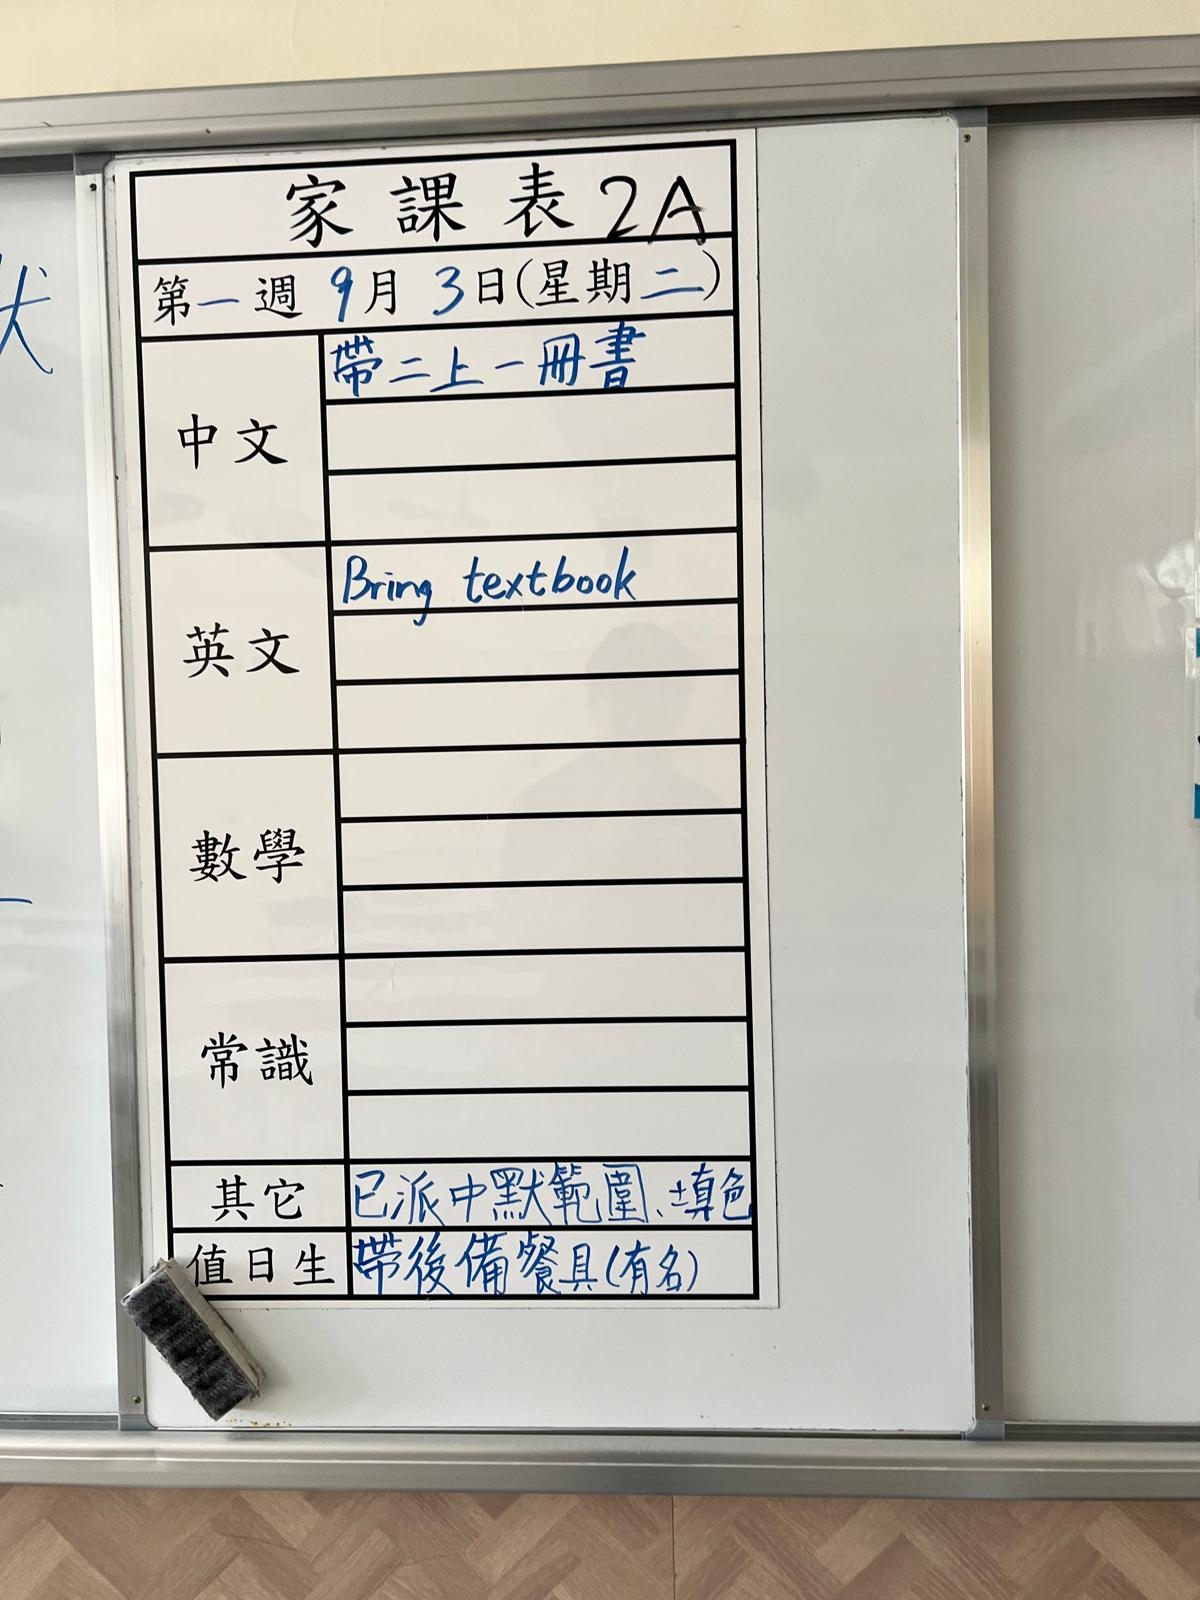 家課表 2A
第一週 9月 3日(星期二)
中文
帶二上一冊書
英文
Bring textbook
數學
常識
其它
已派中默範圍、填色
值日生
帶後備餐具(有名)